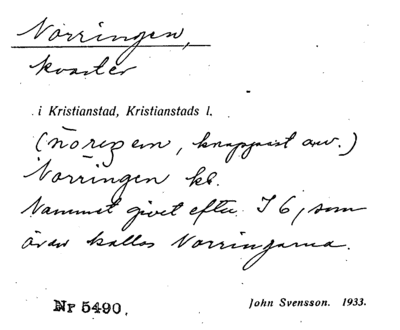 Norringen,
kvarter
i Kristianstad, Kristianstads l.
(norigen, knappast anv.)
Norringen kv.
Namnet givet efter I 6, som
även kallas Norringarna.
Nr 5490.
John Svensson. 1933.